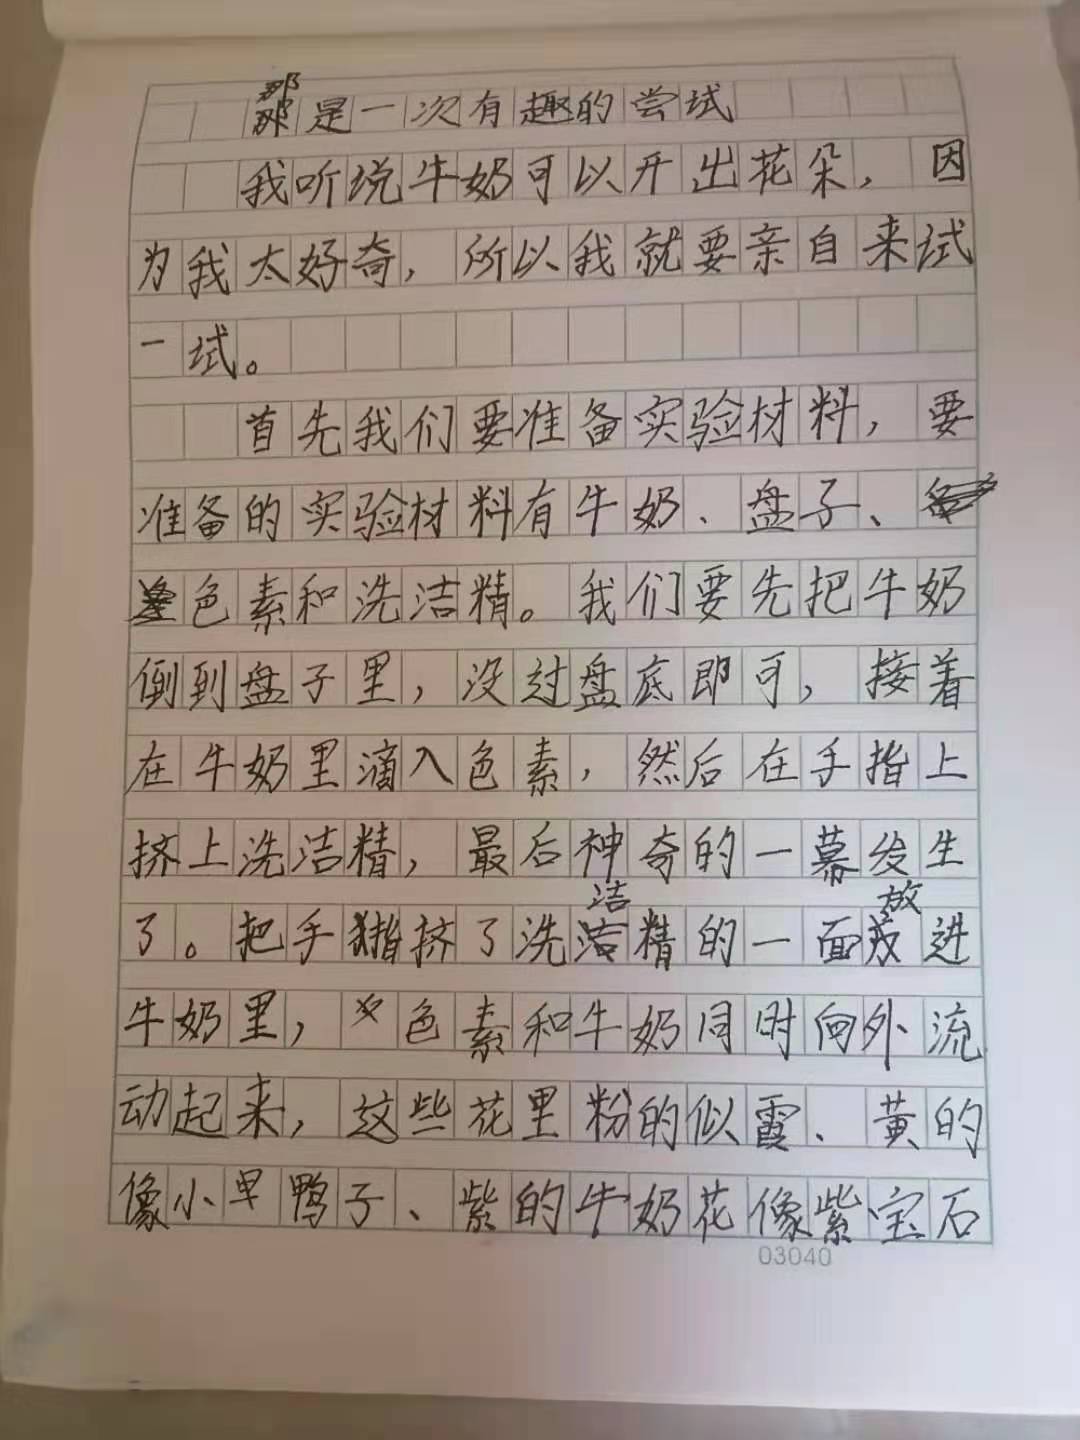 那是一次有趣的尝试
我听说牛奶可以开出花朵，因
为我太好奇，所以我就要亲自来试
一试。
首先我们要准备实验材料，要
准备的实验材料有牛奶、盘子、
色素和洗洁精。我们要先把牛奶
倒到盘子里，没过盘底即可，接着
在牛奶里滴入色素，然后在手指上
挤上洗洁精，最后神奇的一幕发生
了。把手指挤了洗洁精的一面放进
牛奶里，色素和牛奶同时向外流
动起来，这些花里粉的似霞、黄的
像小早鸭子、紫的牛奶花像紫宝石
03040